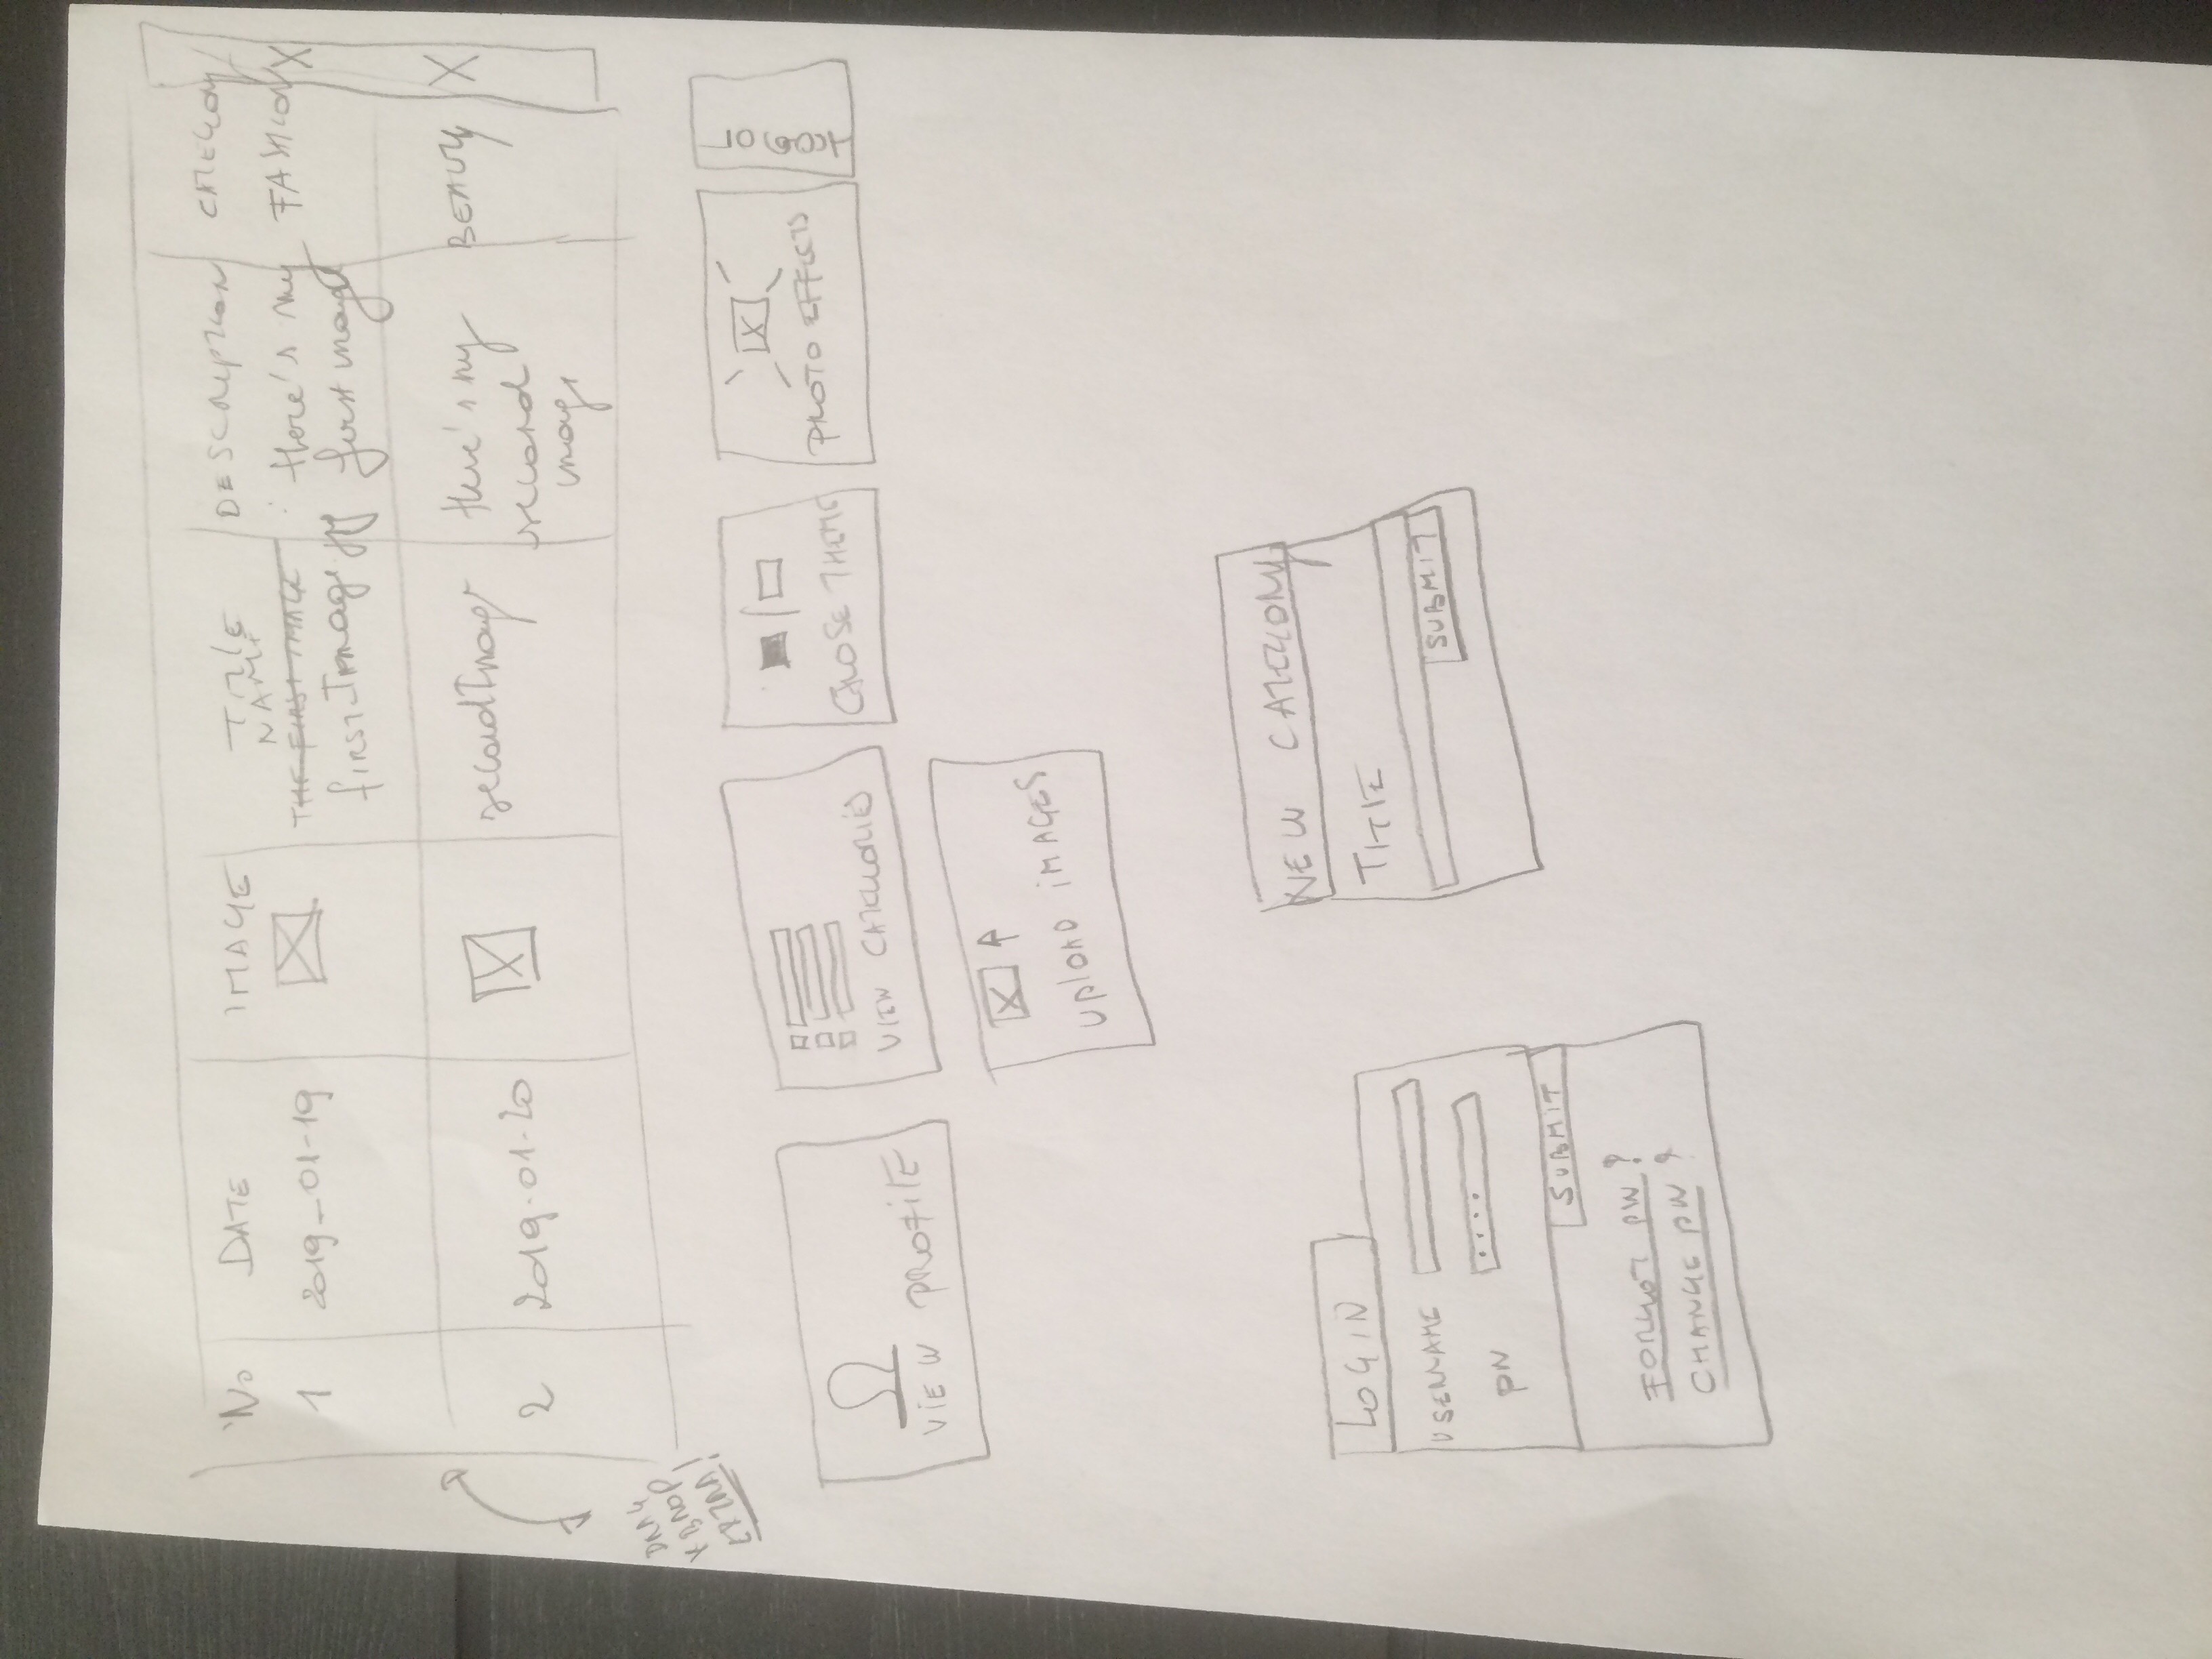 No DATE IMAGE TITLE DESCRIPTION CATEGORY
NAME
1 2019-01-19 THE FIRST IMAGE there's my FASHION X
fIRST_Image.jpg first image
2 2019-01-20 secondImage there's my BEAUTY X
second
image
DRAG
& DROP
EXTRA!
VIEW PROFILE
VIEW CATEGORIES
CHOSE THEME
PHOTO EFFECTS
LOGOUT
UPLOAD IMAGES
LOGIN
USERNAME
PW
SUBMIT
FORGOT PW?
CHANGE PW?
NEW CATEGORY
TITLE
SUBMIT